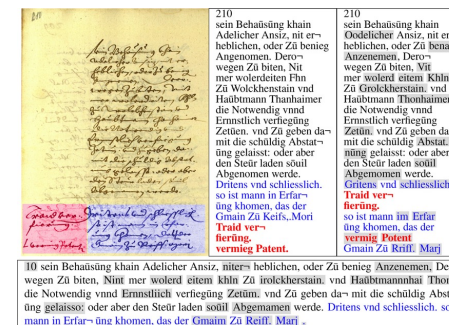 210
sein Behaüsüng khain
Adelicher Ansiz, nit er¬
heblichen, oder Zü benieg
Angenomen. Dero¬
wegen Zü biten, Nit
mer wolerdeiten Fhn
Zü Wolckhenstain vnd
Haübtmann Thanhaimer
die Notwendig vnnd
Ernnstlich verfiegüng
Zetüen. vnd Zü geben da¬
mit die schüldig Abstat¬
üng gelaisst: oder aber
den Steür laden soüil
Abgenomen werde.
Dritens vnd schliesslich.
so ist mann in Erfar¬
üng khomen, das der
Gmain Zü Keifs,.Mori
Traid ver¬
fierüng.
vermieg Patent.
210
sein Behaüsüng khain
Oodelicher Ansiz, nit er
heblichen, oder Zü bena
Anzenemen, Dero¬
wegen Zü biten, Vit
mer wolerd eitem Khln
Zü Grolckherstain. vnd
Haübtmann Thonhaimer
die Notwendig vnnd
Ernnstlich verfiegüng
Zetün. vnd Zü geben da
mit die schüldig Abstat.
nüng gelaisst: oder aber
den Steür laden soüil
Abgenomen werde.
Gritens vnd schliesslich
Traid ver¬
fierüng.
so ist mann im Erfar
üng khomen, das der
vermig Potent
Gmain Zü Reiff. Marj
10 sein Behaüsüng khain Adelicher Ansiz, niter¬ heblichen, oder Zü benieg Anzenemen, De
wegen Zü biten, Nint mer wolerd eitem khln Zü irolckherstain. vnd Haübtmannhai Thon
die Notwendig vnnd Ernnstliich verfiegüng Zetüm. vnd Zü geben da¬ mit die schüldig Abst
üng gelaisso: oder aber den Steür laden soüil Abgemamen werde. Dritens vnd schliesslich. so
mann in Erfar¬ üng khomen, das der Gmaim Zü Reiff. Marj